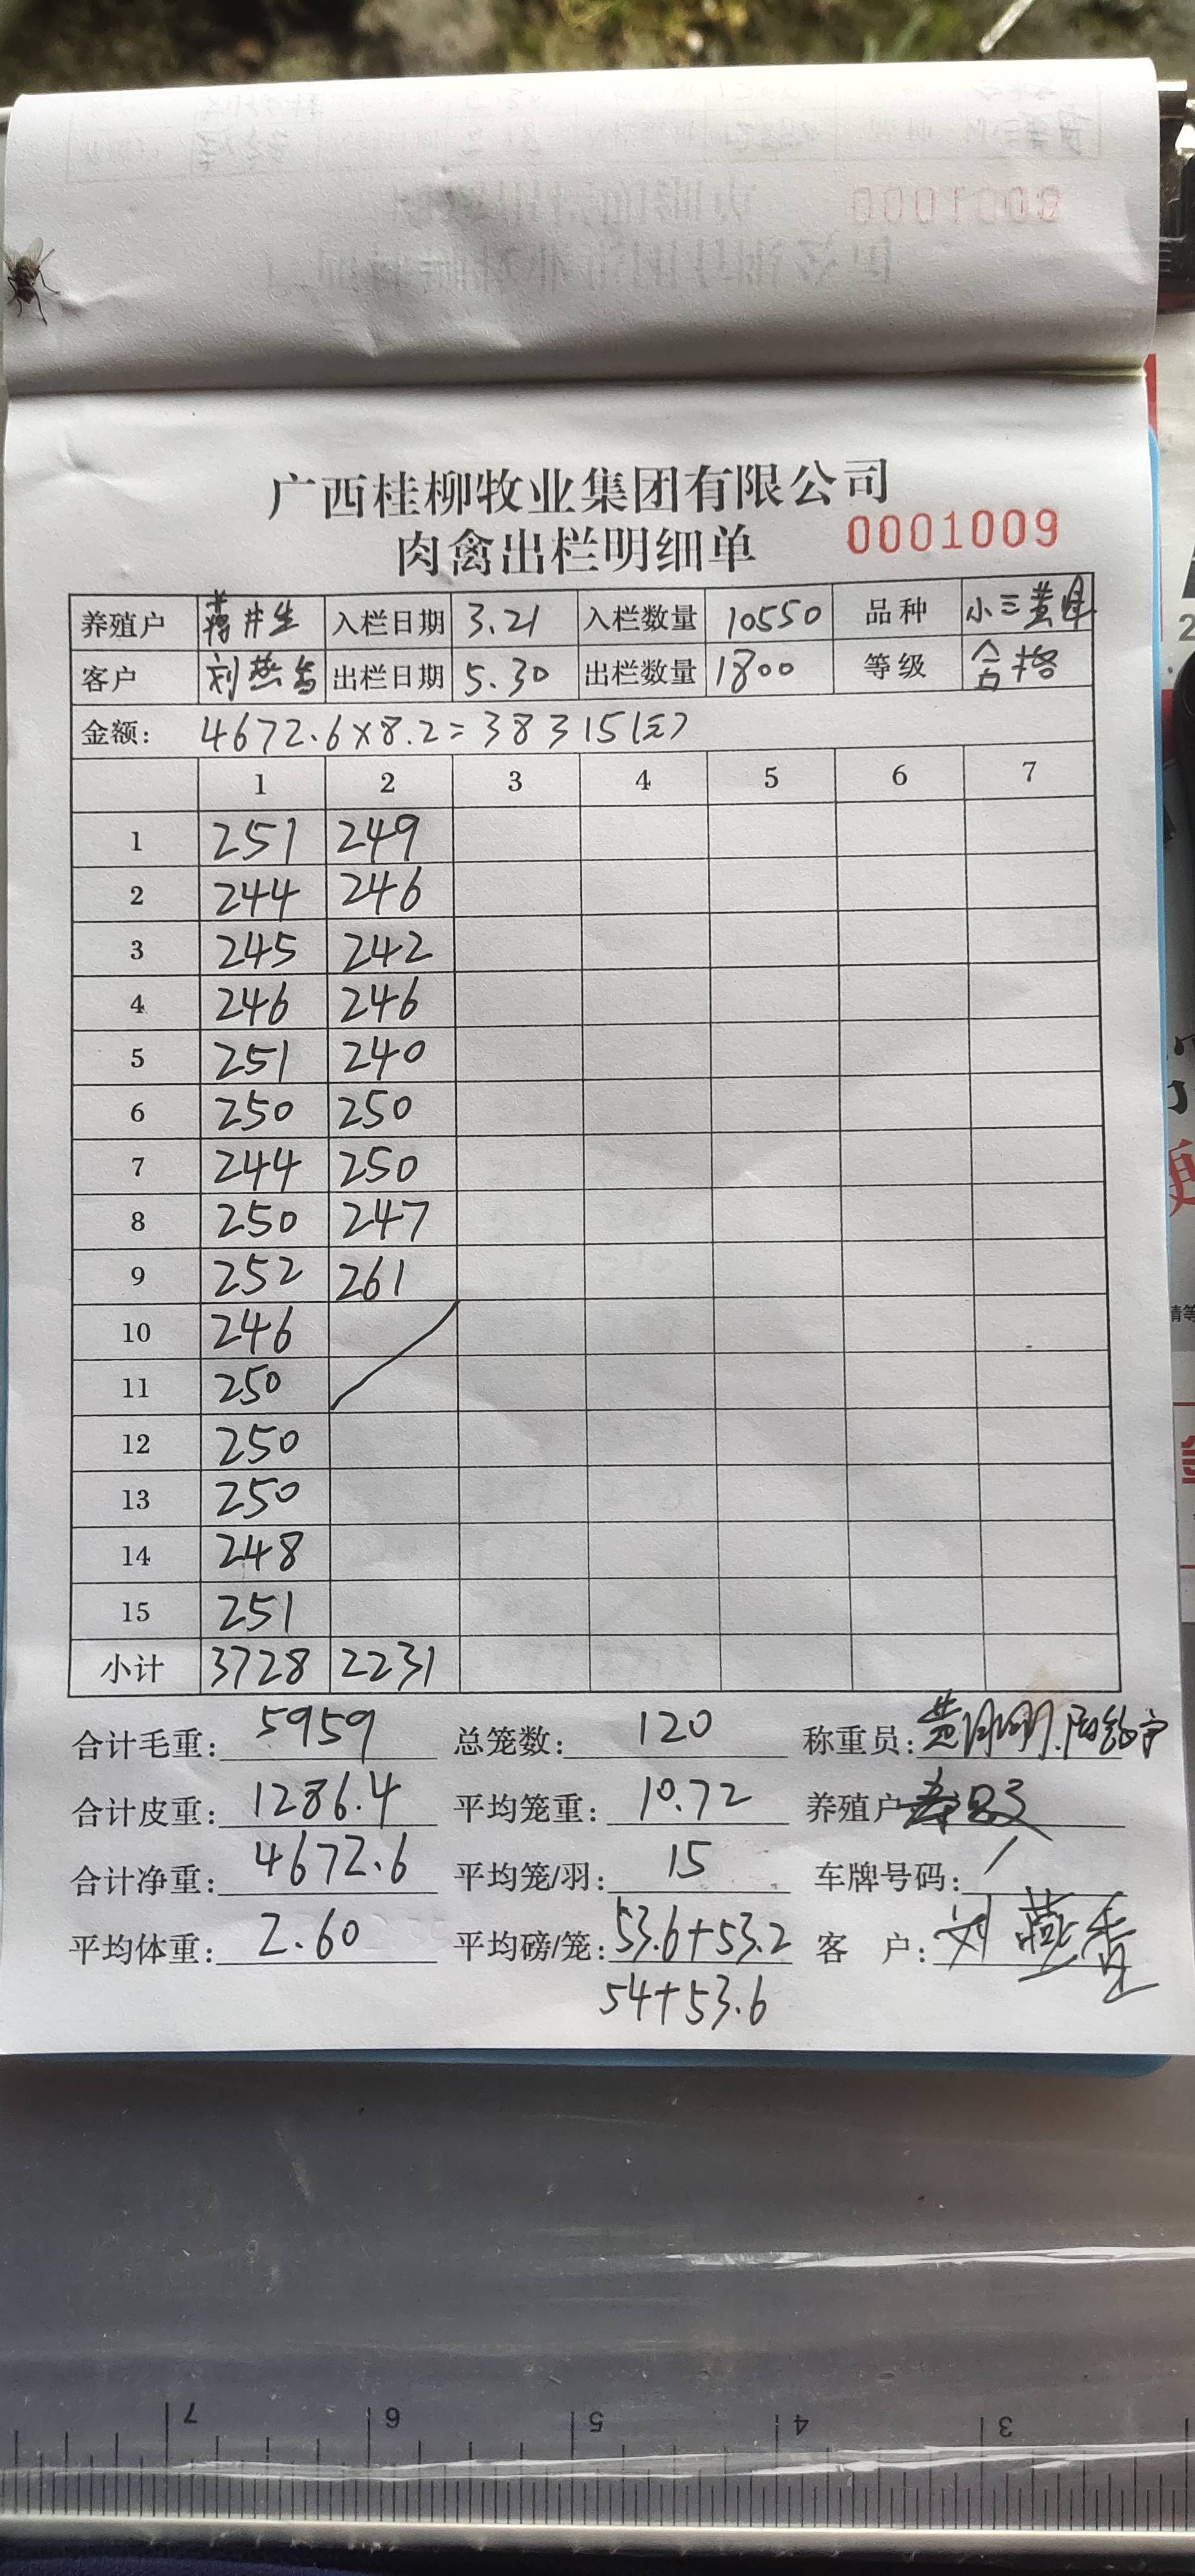 广西桂柳牧业集团有限公司
肉禽出栏明细单 0001009
养殖户 蒋井生 入栏日期 3.21 入栏数量 10550 品种 小三黄
客户 刘燕香 出栏日期 5.30 出栏数量 1800 等级 合格
金额: 4672.6×8.2=38315(元)
1 2 3 4 5 6 7
1 251 249
2 244 246
3 245 242
4 246 246
5 251 240
6 250 250
7 244 250
8 250 247
9 252 261
10 246
11 250
12 250
13 250
14 248
15 251
小计 3728 2231
合计毛重: 5959 总笼数: 120 称重员:
合计皮重: 1286.4 平均笼重: 10.72 养殖户
合计净重: 4672.6 平均笼/羽: 15 车牌号码: /
平均体重: 2.60 平均磅/笼: 53.6+53.2 客 户: 刘燕香
54+53.6
7 6 5 4 3